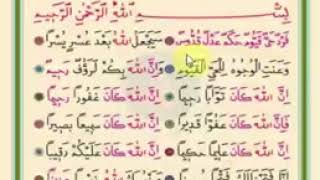 بِسْمِ اللهِ الرَّحْمٰنِ الرَّحِيمِ
فَرْدٌ حَیٌّ قَيُّومٌ حَكَمٌ عَدْلٌ قُدُّوسٌ سَيَجْعَلُ اللهُ بَعْدَ عُسْرٍ يُسْرًا
وَعَنَتِ الْوُجُوهُ لِلْحَيِّ الْقَيُّومِ وَاِنَّ اللهَ بِكُمْ لَرَؤُفٌ رَحِيمٌ
اِنَّ اللهَ كَانَ تَوَّابًا رَحِيمًا اِنَّ اللهَ كَانَ غَفُورًا رَحِيمًا
اِنَّ اللهَ كَانَ عَفُوًّا قَدِيرًا اِنَّ اللهَ كَانَ سَمِيعًا بَصِيرًا
اِنَّ اللهَ كَانَ عَلِيمًا حَكِيمًا اِنَّ اللهَ كَانَ عَلَيْكُمْ رَقِيبًا